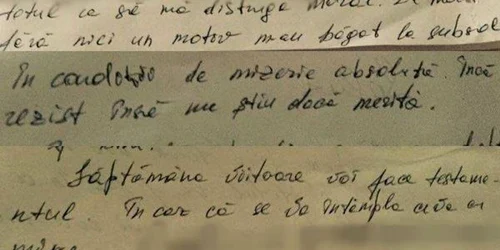 totul ca să mă distrugă moral. De mai
fără nici un motiv m-au băgat la subsol
În condiții de mizerie absolută. Încă
rezist însă nu știu dacă merită.
Săptămâna viitoare voi face testame-
ntul. În caz că se va întâmpla ceva cu